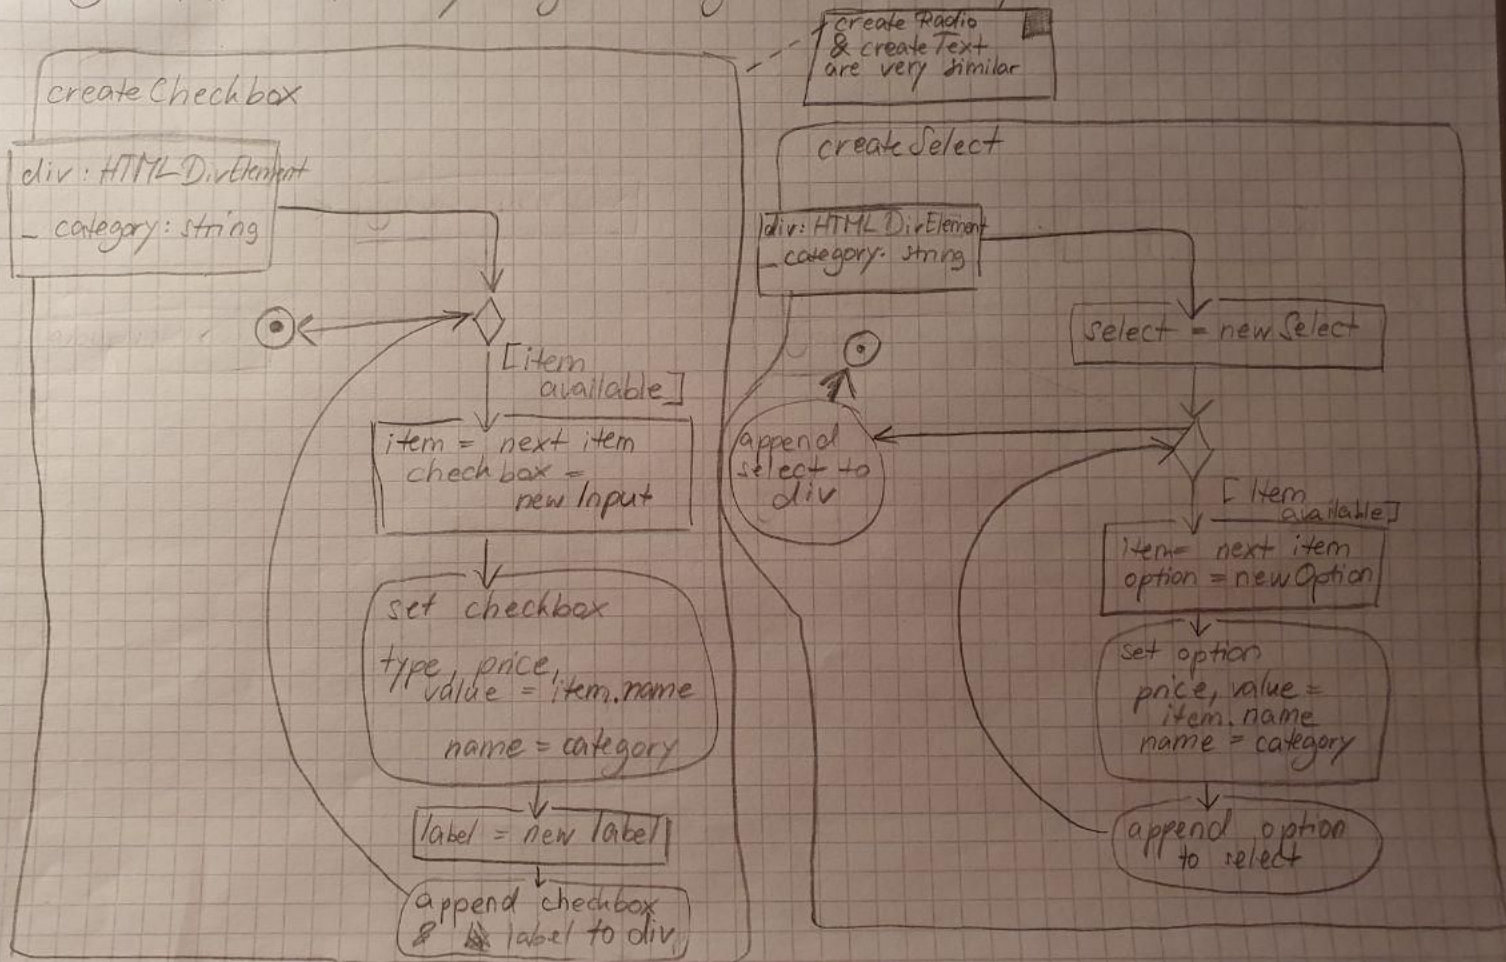 create Radio
& create Text
are very similar
createCheckbox
div: HTMLDivElement
_category: string
[item
available]
item = next item
checkbox =
new Input
set checkbox
type, price,
value = item.name
name = category
label = new label
append checkbox
& label to div
createSelect
div: HTMLDivElement
_category: string
select = new Select
append
select to
div
[Item
available]
item= next item
option = new Option
set option
price, value =
item.name
name = category
append option
to select